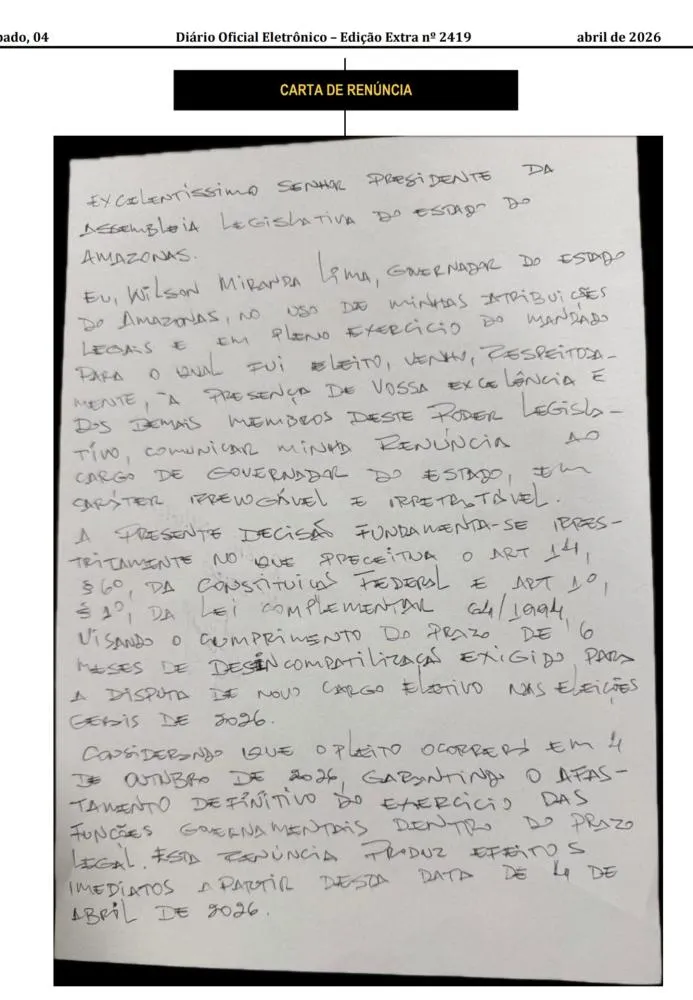 bado, 04 Diário Oficial Eletrônico – Edição Extra nº 2419 abril de 2026
CARTA DE RENÚNCIA
EXCELENTÍSSIMO SENHOR PRESIDENTE DA
ASSEMBLEIA LEGISLATIVA DO ESTADO DO
AMAZONAS.
EU, WILSON MIRANDA LIMA, GOVERNADOR DO ESTADO
DO AMAZONAS, NO USO DE MINHAS ATRIBUIÇÕES
LEGAIS E EM PLENO EXERCÍCIO DO MANDADO
PARA O QUAL FUI ELEITO, VENHO, RESPEITODA-
MENTE, À PRESENÇA DE VOSSA EXCELÊNCIA E
DOS DEMAIS MEMBROS DESTE PODER LEGISLA-
TIVO, COMUNICAR MINHA RENÚNCIA AO
CARGO DE GOVERNADOR DO ESTADO, EM
CARÁTER IRREVOGÁVEL E IRRETRATÁVEL.
A PRESENTE DECISÃO FUNDAMENTA-SE IRRES-
TRITAMENTE NO QUE PRECEITUA O ART 14,
§ 6º, DA CONSTITUIÇÃO FEDERAL E ART 1º,
§ 1º, DA LEI COMPLEMENTAR 64/1994,
VISANDO O CUMPRIMENTO DO PRAZO DE 6
MESES DE DESINCOMPATILIZAÇÃO EXIGIDO PARA
A DISPUTA DE NOVO CARGO ELETIVO NAS ELEIÇÕES
GERAIS DE 2026.
CONSIDERANDO QUE O PLEITO OCORRERÁ EM 4
DE OUTUBRO DE 2026, GARANTINDO O AFAS-
TAMENTO DEFINITIVO DO EXERCÍCIO DAS
FUNÇÕES GOVERNAMENTAIS DENTRO DO PRAZO
LEGAL. ESTA RENÚNCIA PRODUZ EFEITOS
IMEDIATOS A PARTIR DESTA DATA DE 4 DE
ABRIL DE 2026.